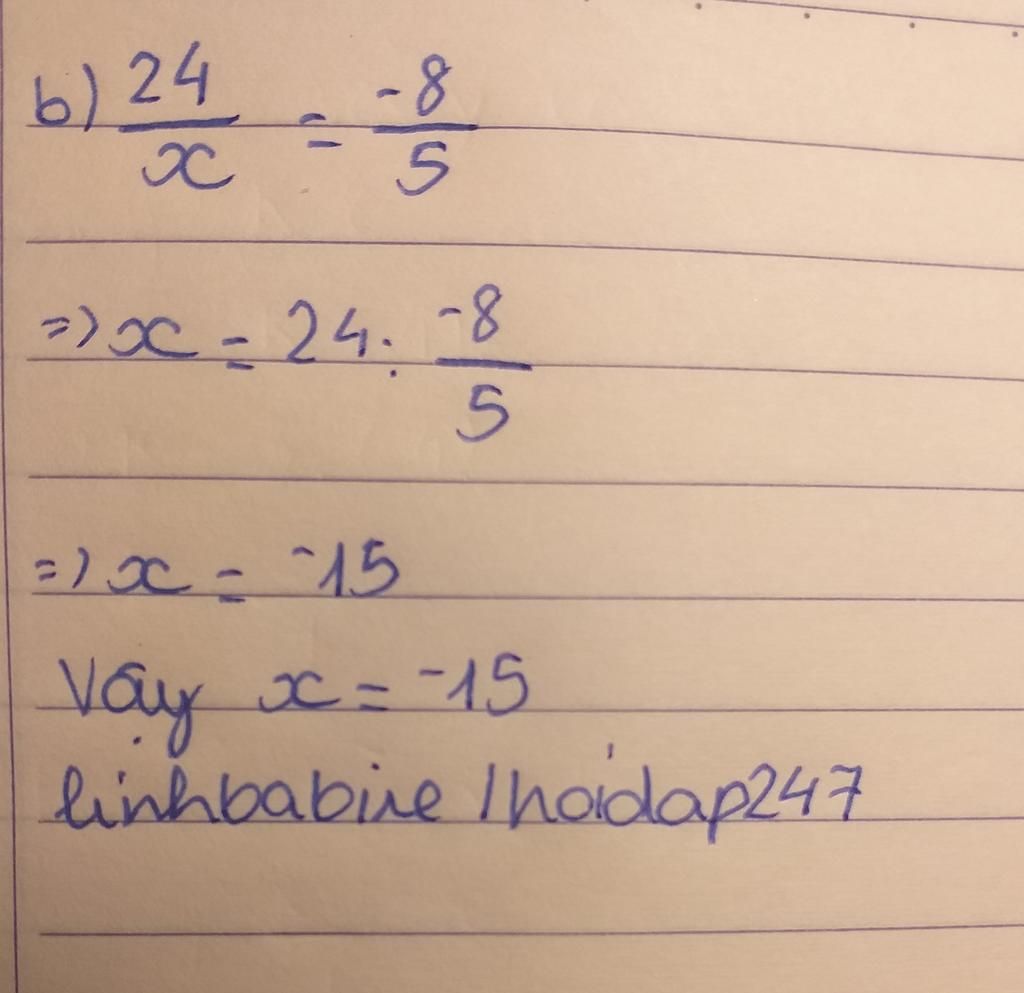 b) 24/x = -8/5
=> x = 24 : -8/5
=> x = -15
Vậy x = -15
linhbabine / hoidap247